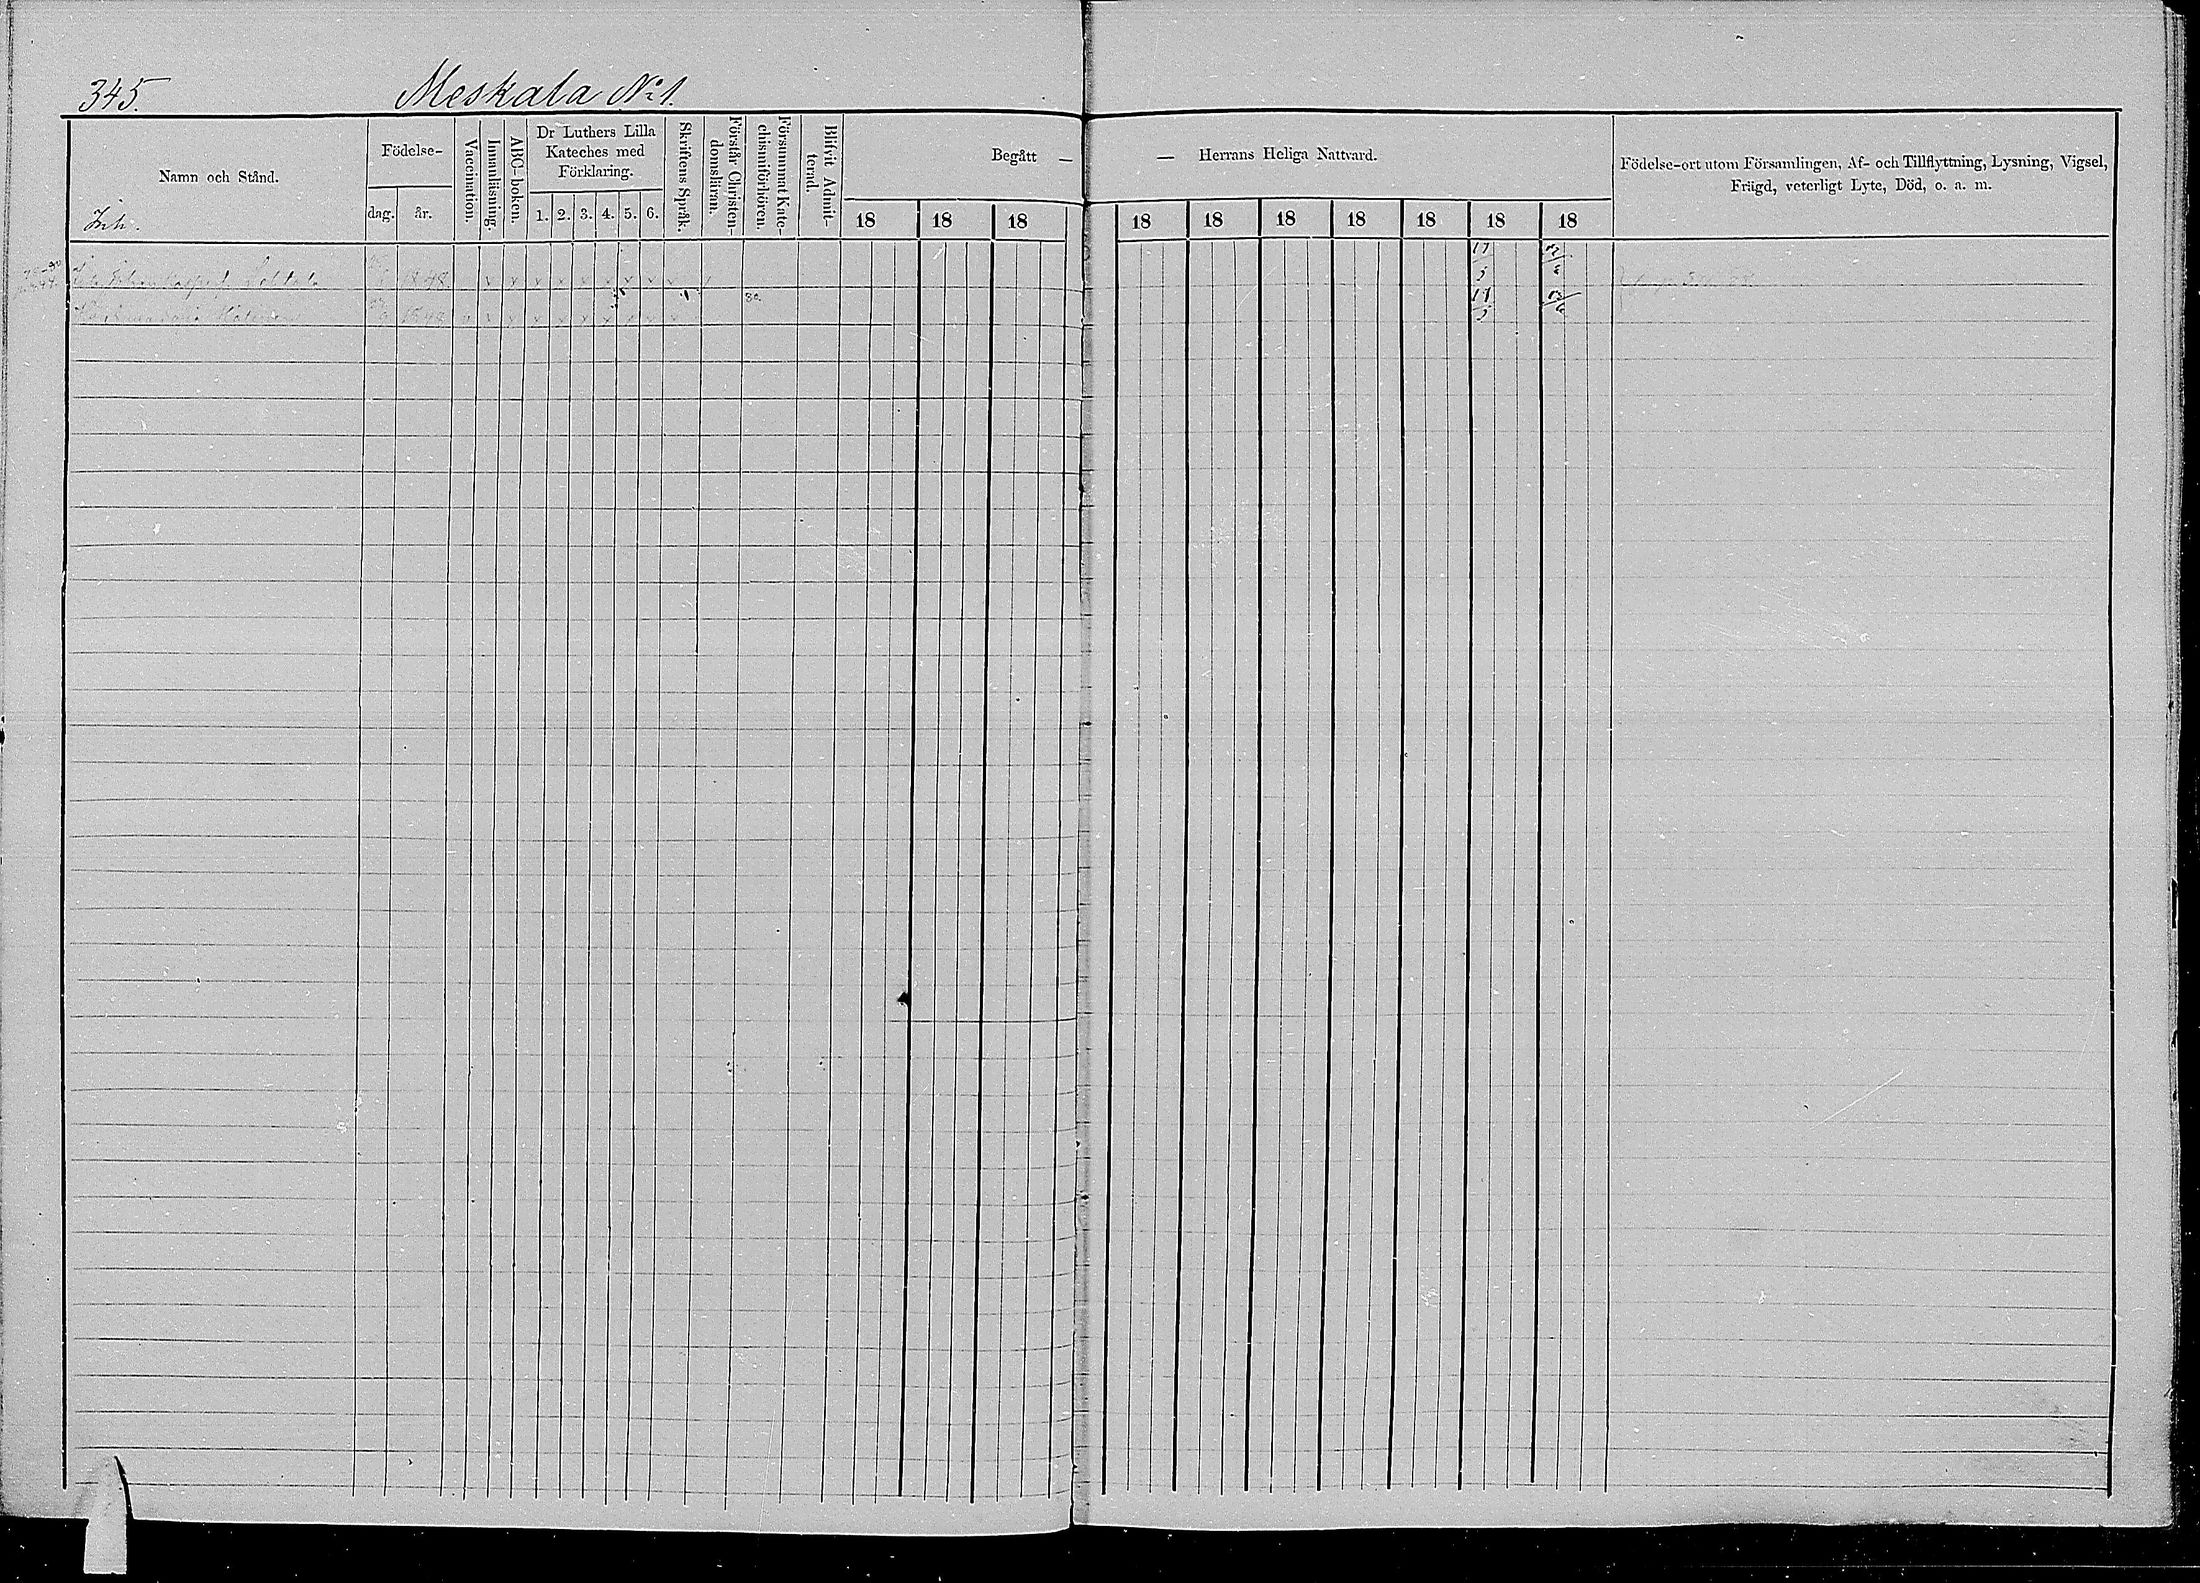 345. Meskala No 1.
Namn och Stånd.
Inh.
Födelse-
dag. år.
Vaccination.
Innanläsning.
ABC-boken.
Dr Luthers Lilla
Kateches med
Förklaring.
1. 2. 3. 4. 5. 6.
Skriftens Språk.
Förstår Christen-
domsläran.
Försummat Kate-
chismiförhören.
Blifvit Admit-
terad.
Begått —
— Herrans Heliga Nattvard.
18 18 18 18 18 18 18 18 18 18
Födelse-ort utom Församlingen, Af- och Tillflyttning, Lysning, Vigsel,
Frägd, veterligt Lyte, Död, o. a. m.
1848 x x x x x x x x x
1848 x x x x x x x x x